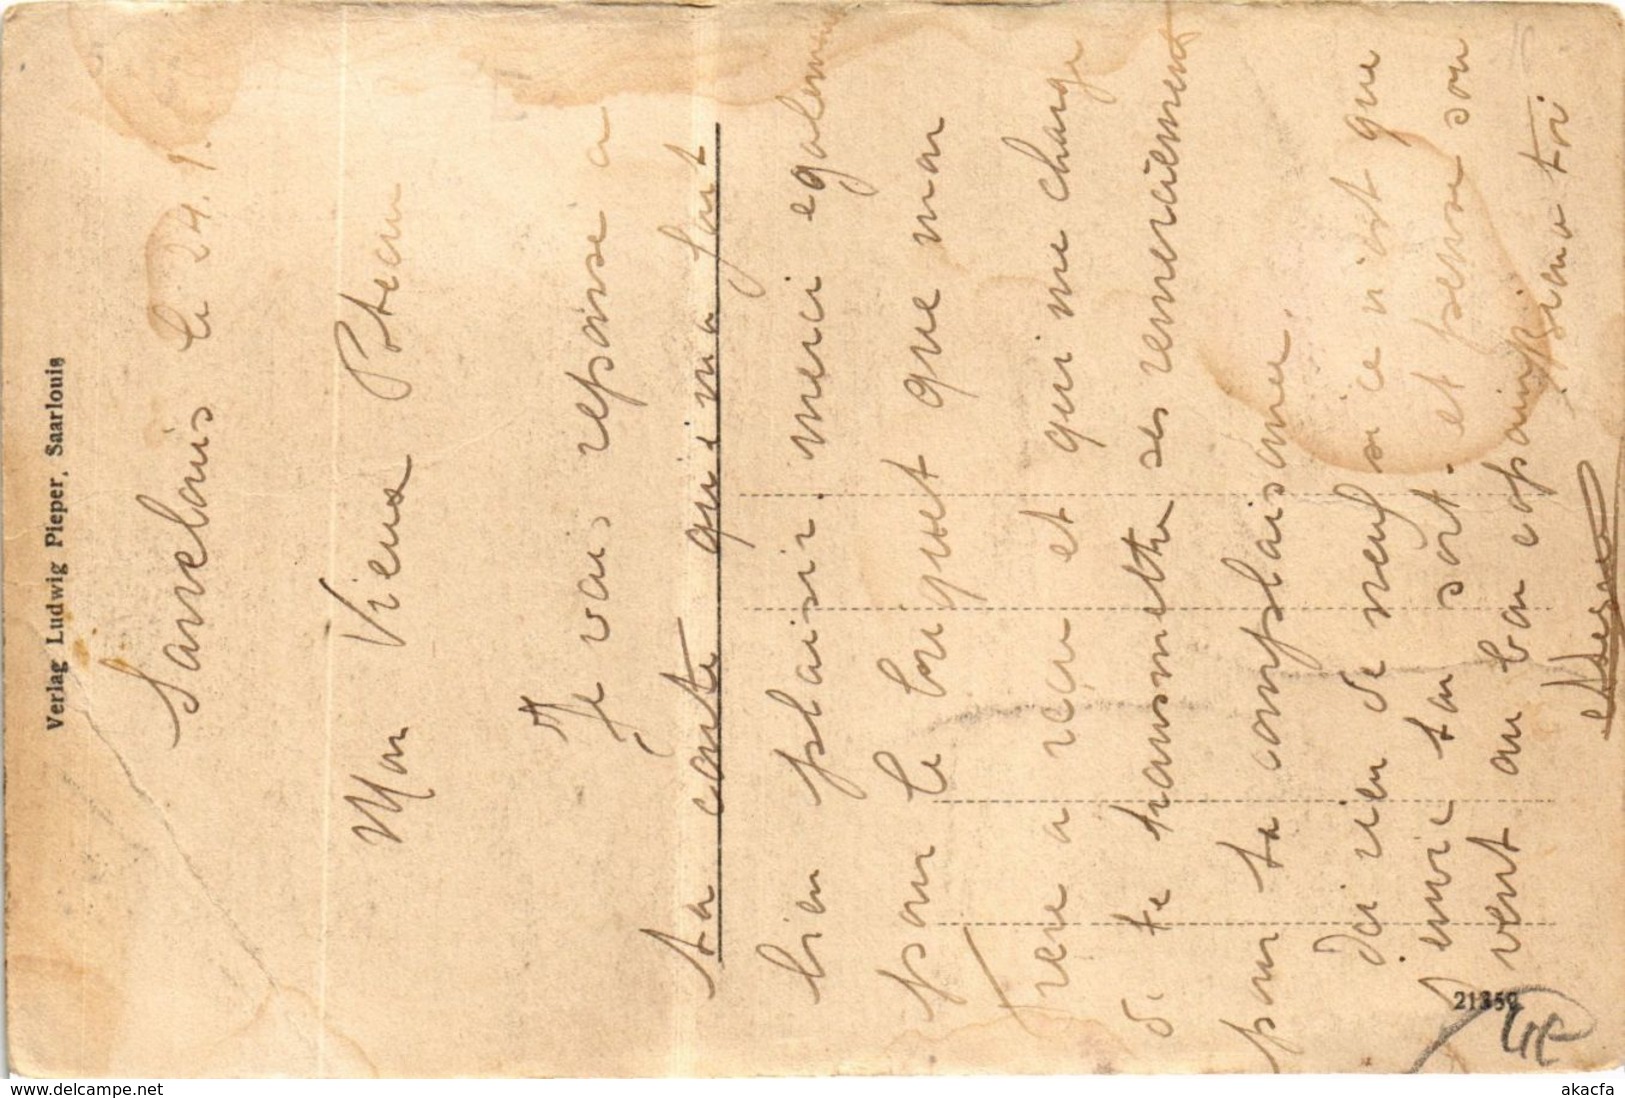 Verlag Ludwig Pieper, Saarlouis
Sarrelouis le 24.9.
Mon Vieux
Je vais reponse a
ta carte qui ma fait
bien plaisir. merci egalement
pour le bouquet que mon
frere a recu et qui me charge
de te transmettre ses remerciement
pour ta complaisance.
rien de neuf si ce n'est que
j'envie ton sort. et pense sou
vent au bon copain
21359
delcampe.net
akacfa